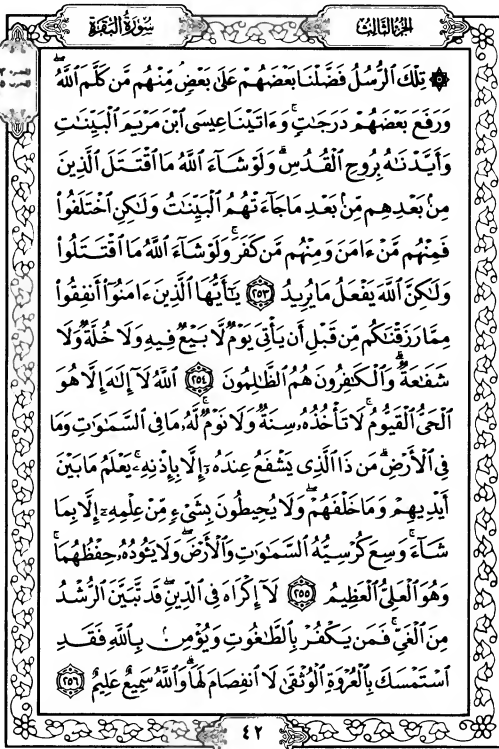 سُورَةُ الْبَقَرَةِ
الجزء الثالث
۞ تِلْكَ ٱلرُّسُلُ فَضَّلْنَا بَعْضَهُمْ عَلَىٰ بَعْضٍ مِّنْهُم مَّن كَلَّمَ ٱللَّهُ
وَرَفَعَ بَعْضَهُمْ دَرَجَٰتٍ وَءَاتَيْنَا عِيسَى ٱبْنَ مَرْيَمَ ٱلْبَيِّنَٰتِ
وَأَيَّدْنَٰهُ بِرُوحِ ٱلْقُدُسِ وَلَوْ شَآءَ ٱللَّهُ مَا ٱقْتَتَلَ ٱلَّذِينَ
مِنۢ بَعْدِهِم مِّنۢ بَعْدِ مَا جَآءَتْهُمُ ٱلْبَيِّنَٰتُ وَلَٰكِنِ ٱخْتَلَفُوا۟
فَمِنْهُم مَّنْ ءَامَنَ وَمِنْهُم مَّن كَفَرَ وَلَوْ شَآءَ ٱللَّهُ مَا ٱقْتَتَلُوا۟
وَلَٰكِنَّ ٱللَّهَ يَفْعَلُ مَا يُرِيدُ ٢٥٣ يَٰٓأَيُّهَا ٱلَّذِينَ ءَامَنُوٓا۟ أَنفِقُوا۟
مِمَّا رَزَقْنَٰكُم مِّن قَبْلِ أَن يَأْتِىَ يَوْمٌ لَّا بَيْعٌ فِيهِ وَلَا خُلَّةٌ وَلَا
شَفَٰعَةٌ وَٱلْكَٰفِرُونَ هُمُ ٱلظَّٰلِمُونَ ٢٥٤ ٱللَّهُ لَآ إِلَٰهَ إِلَّا هُوَ
ٱلْحَىُّ ٱلْقَيُّومُ لَا تَأْخُذُهُۥ سِنَةٌ وَلَا نَوْمٌ لَّهُۥ مَا فِى ٱلسَّمَٰوَٰتِ وَمَا
فِى ٱلْأَرْضِ مَن ذَا ٱلَّذِى يَشْفَعُ عِندَهُۥٓ إِلَّا بِإِذْنِهِۦ يَعْلَمُ مَا بَيْنَ
أَيْدِيهِمْ وَمَا خَلْفَهُمْ وَلَا يُحِيطُونَ بِشَىْءٍ مِّنْ عِلْمِهِۦٓ إِلَّا بِمَا
شَآءَ وَسِعَ كُرْسِيُّهُ ٱلسَّمَٰوَٰتِ وَٱلْأَرْضَ وَلَا يَـُٔودُهُۥ حِفْظُهُمَا
وَهُوَ ٱلْعَلِىُّ ٱلْعَظِيمُ ٢٥٥ لَآ إِكْرَاهَ فِى ٱلدِّينِ قَد تَّبَيَّنَ ٱلرُّشْدُ
مِنَ ٱلْغَىِّ فَمَن يَكْفُرْ بِٱلطَّٰغُوتِ وَيُؤْمِنۢ بِٱللَّهِ فَقَدِ
ٱسْتَمْسَكَ بِٱلْعُرْوَةِ ٱلْوُثْقَىٰ لَا ٱنفِصَامَ لَهَا وَٱللَّهُ سَمِيعٌ عَلِيمٌ ٢٥٦
٤٢